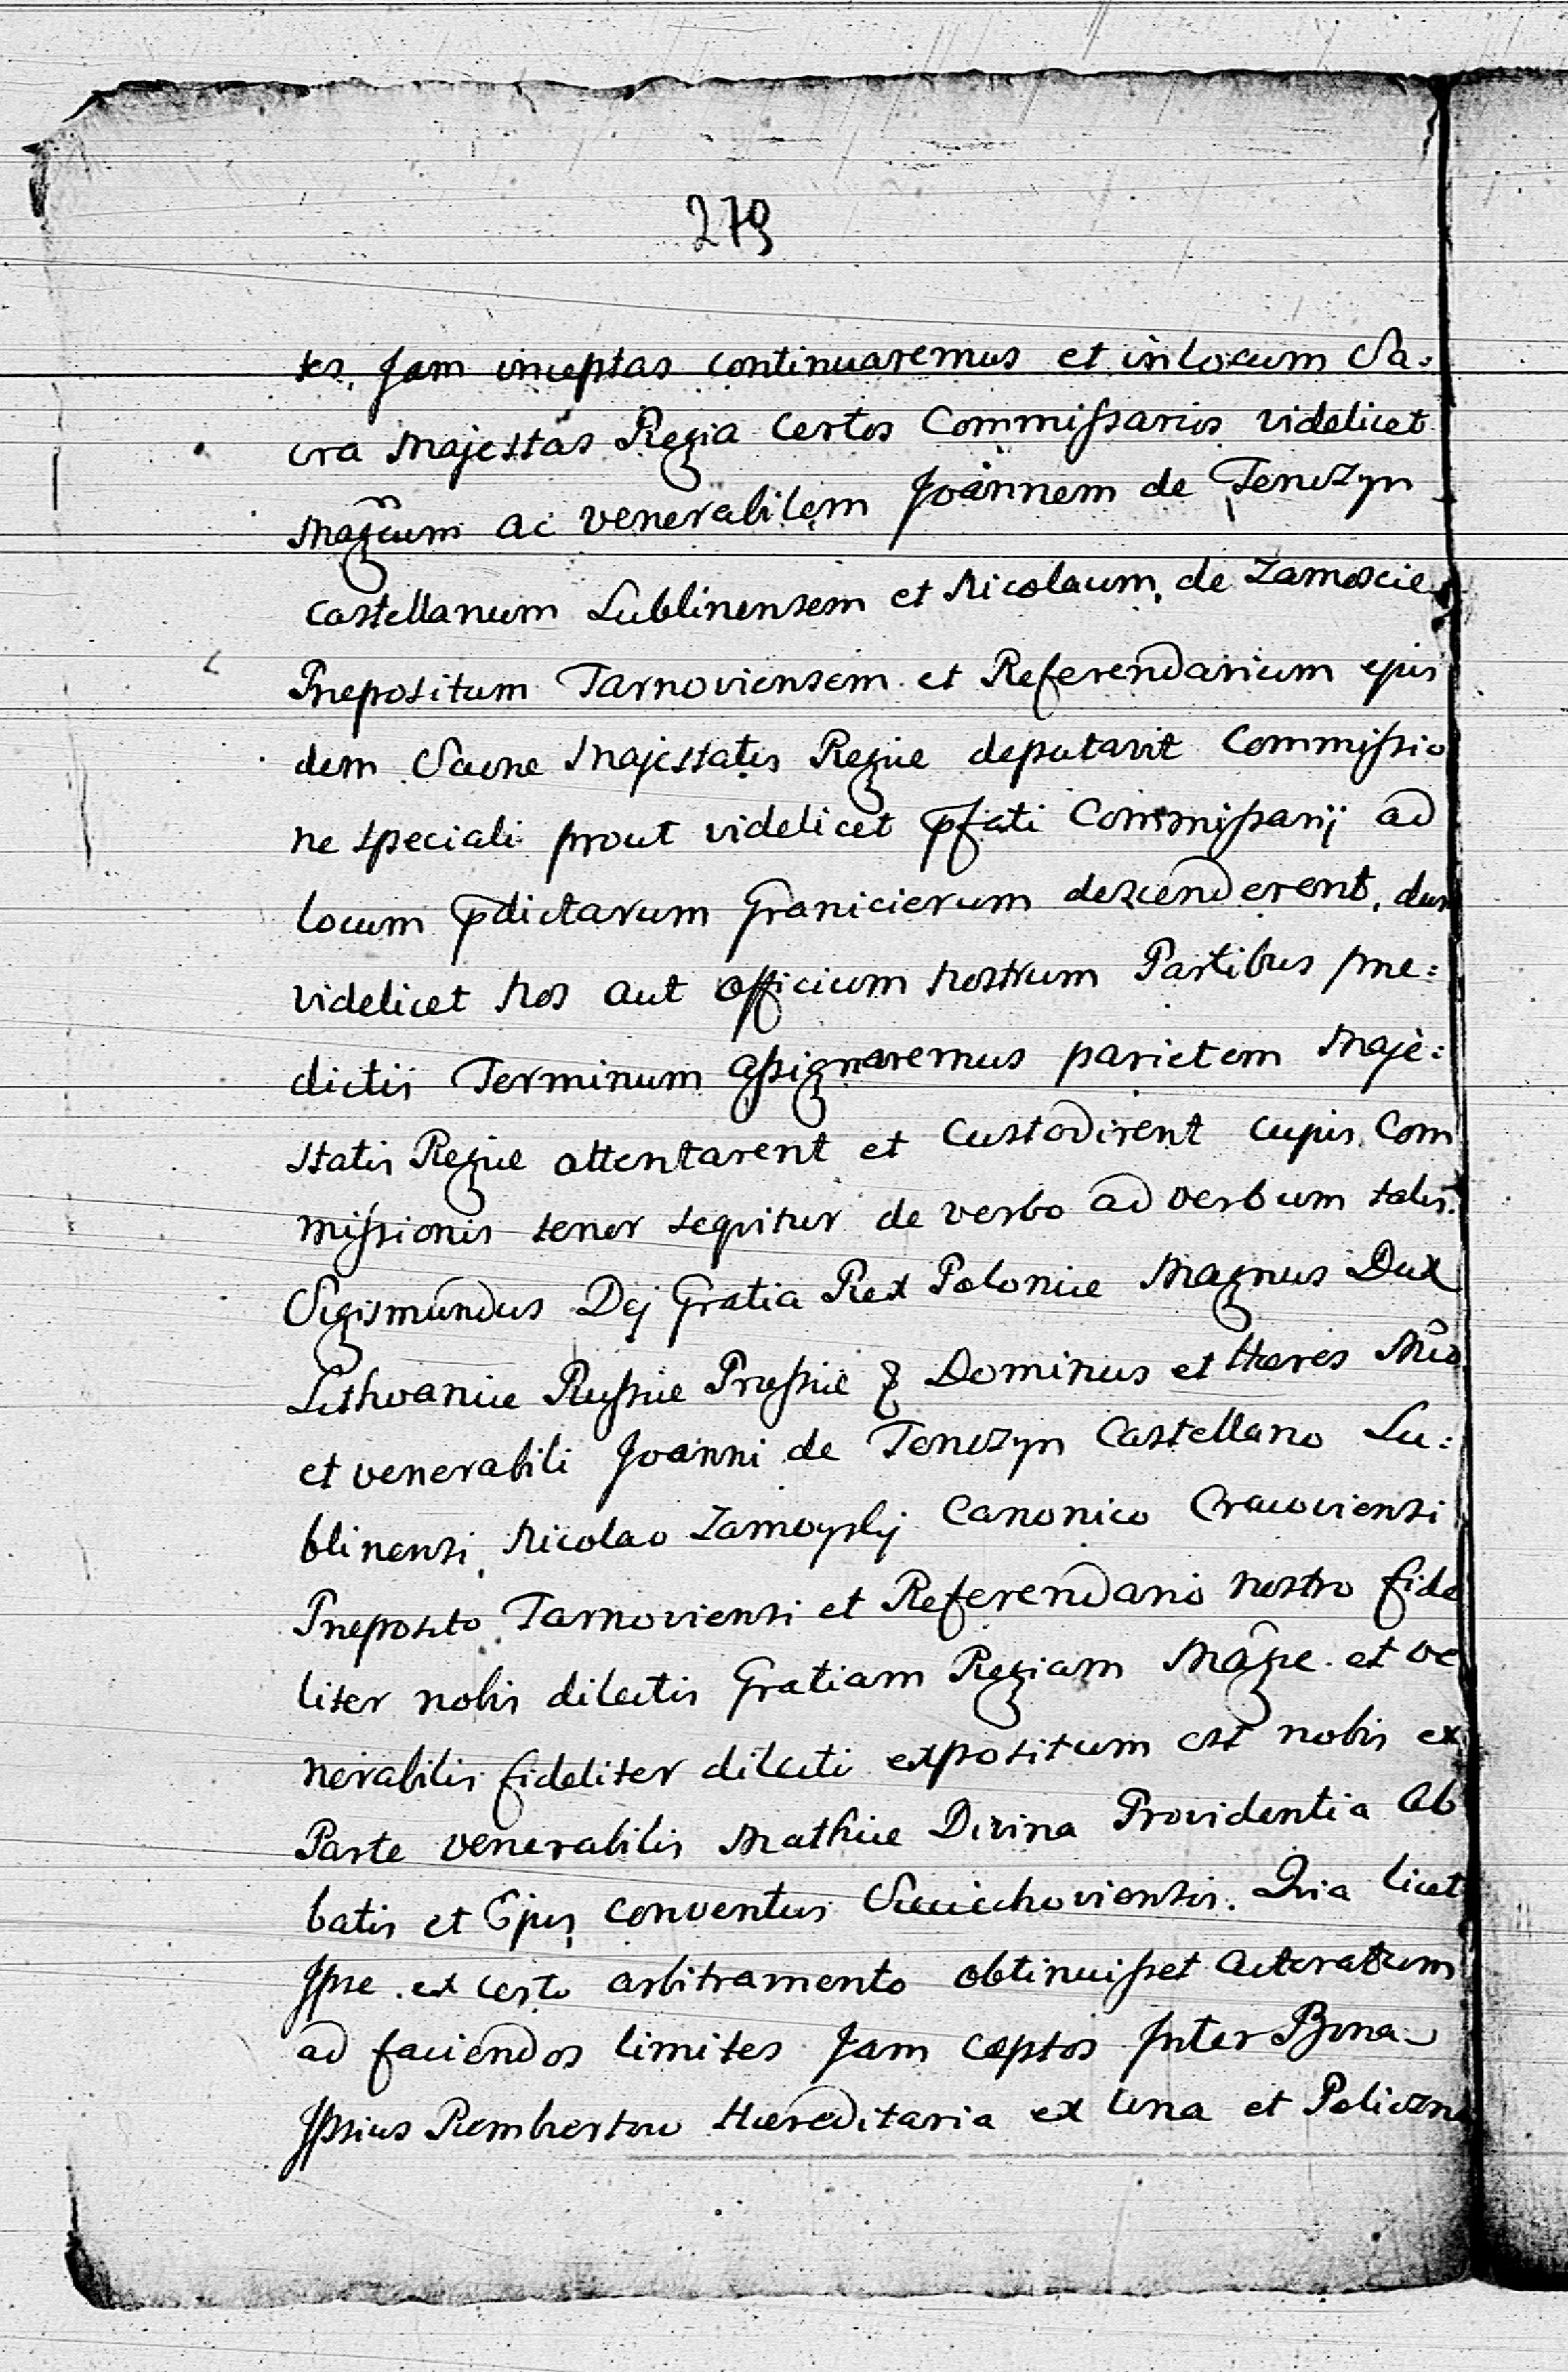 279
tes. Jam inceptas continuaremus et in locum Sa:
cra Majestas Regia Certos Commissarios videlicet
Magcum ac venerabilem Joannem de Tenczyn
Castellanum Lublinensem et Nicolaum de Zamoscie
Prepositum Tarnoviensem et Referendarium ejus
dem Sacre Majestatis Regie deputavit Commissio
ne speciali prout videlicet pfati Commissarij ad
locum pdictarum Granicierum descenderent, dum
videlicet Nos aut officium Nostrum Partibus pre:
dictis Terminum assignaremus parietem Maje:
statis Regie attentarent et Custodirent cujus Com
missionis tenor sequitur de verbo ad verbum talis.
Sigismundus Dej Gratia Rex Polonie Magnus Dux
Lithvanie Russie Prussie & Dominus et Heres Mco
et venerabili Joanni de Tenczyn Castellano Lu:
blinensi Nicolao Zamoyskj Canonico Cracoviensi
Preposito Tarnoviensi et Referendario nostro fide
liter nobis dilectis Gratiam Regiam Mage et ve
nerabilis fideliter dilecti expositum est nobis ex
Parte venerabilis Mathie Divina Providentia Ab
batis et Ejus Conventus Scieciechoviensis. Qvia licet
Ipse ex certo arbitramento obtinuisset Actoratum
ad faciendos limites Jam ceptos Inter Bona
Ipsius Rembertow Hereditaria ex una et Policzna